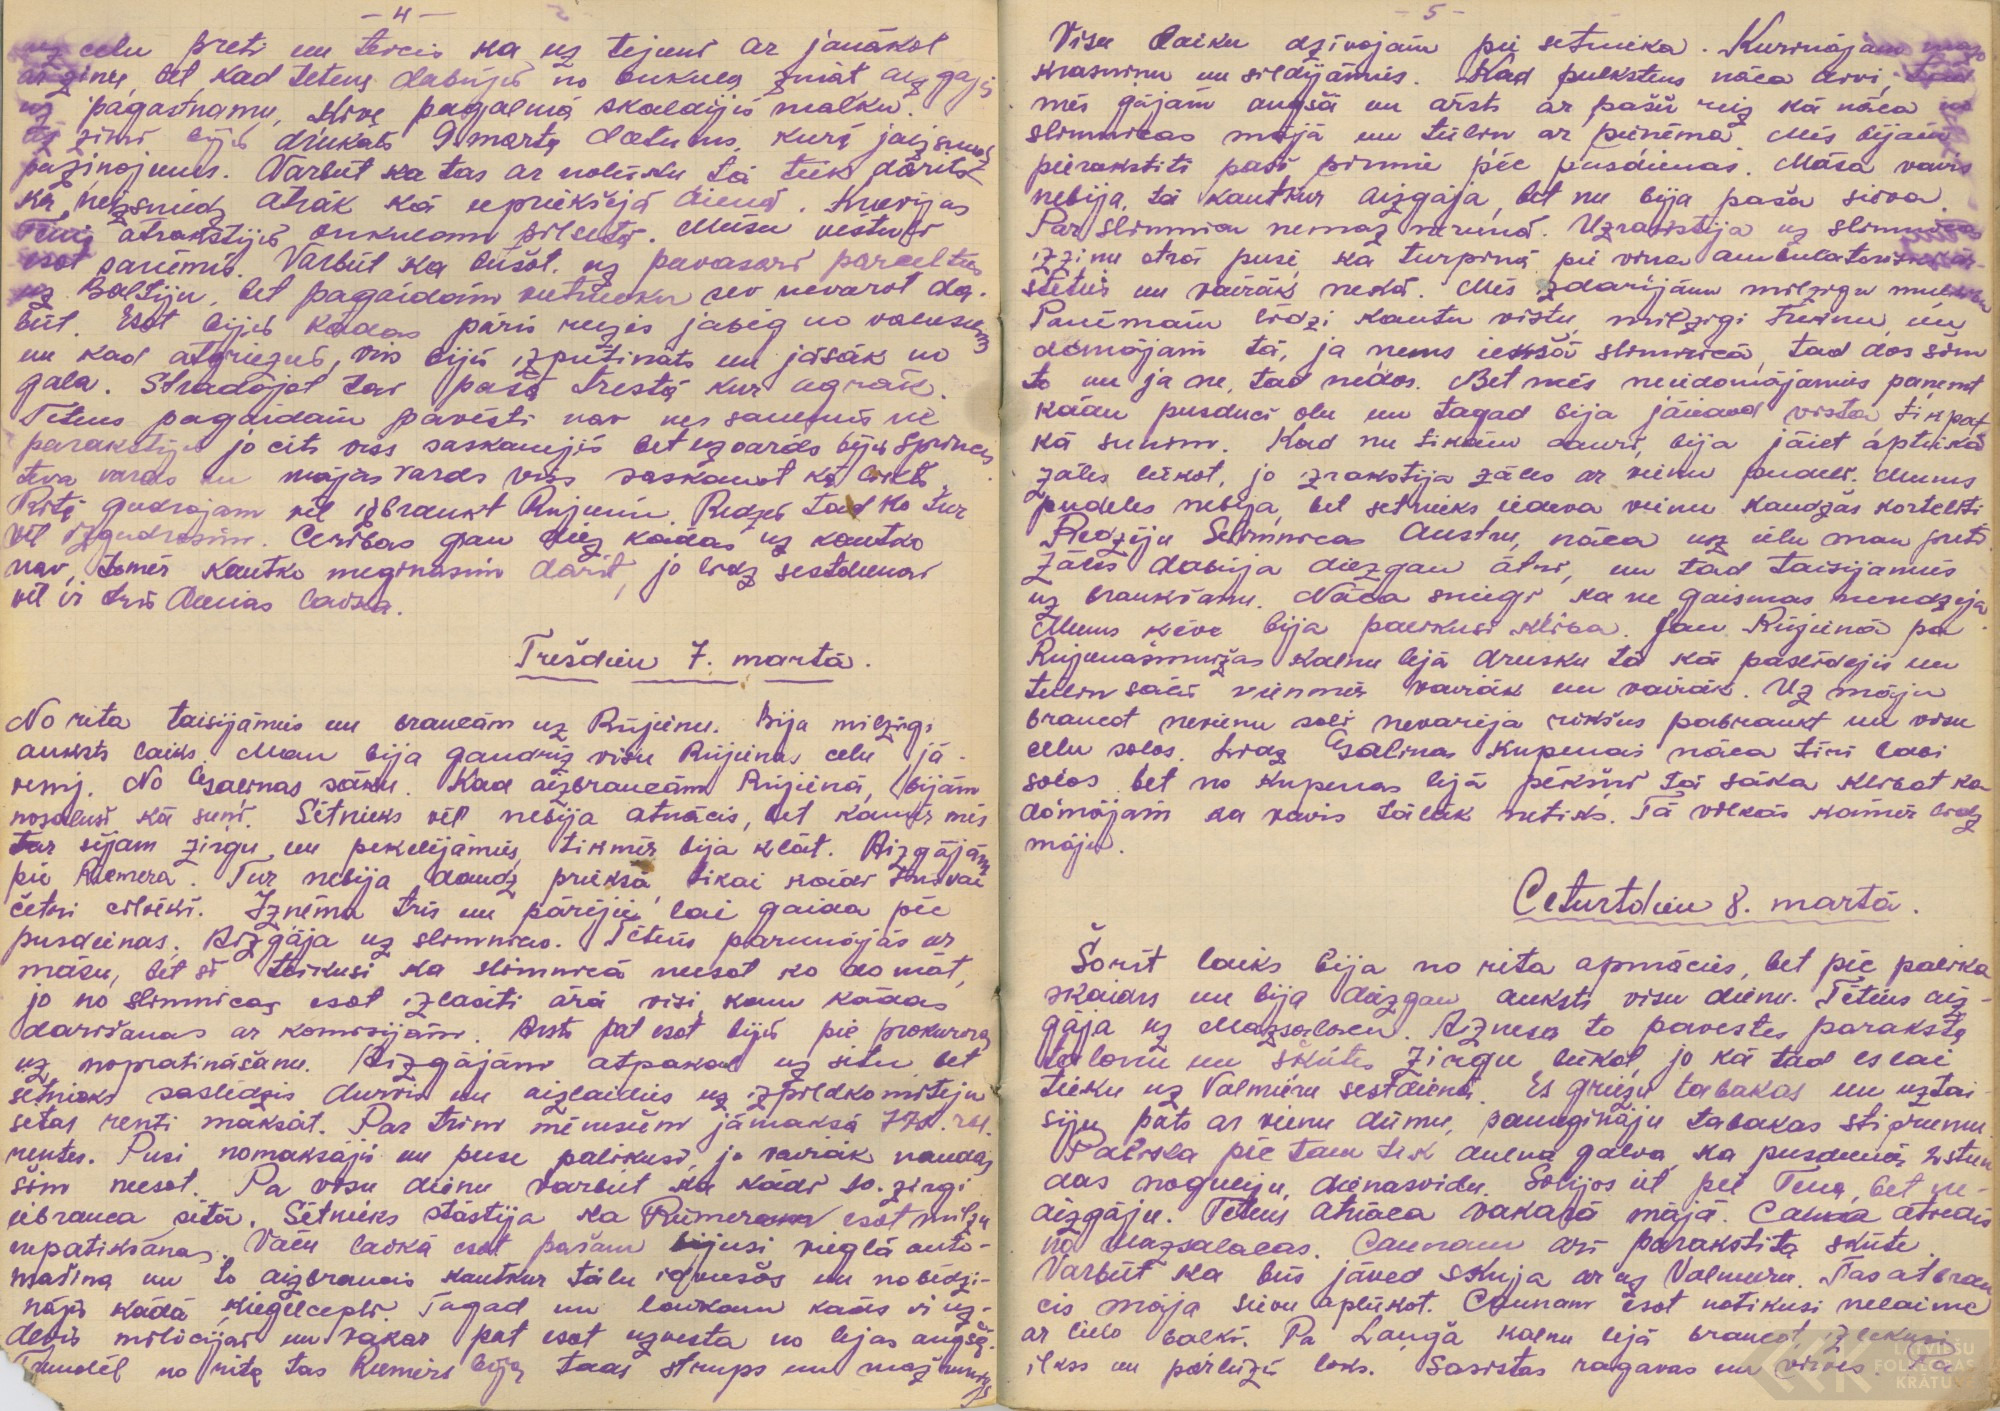 - 4 -
uz ceļu preti un teicis ka uz tejieni ar janākot
ar ziņu, bet, kad tetens dabūjis no onkuļa zināt aizgājis
uz pagastnamu, Kive pagalmā skaldījis malku.
Uz zini bijis drukāts 9 marta datums, kurā jaizsniedz
paziņojums. Varbūt ka tas ar nolūku tā tiek darīts
ka neizsniedz ātrāk kā iepriekšējā dienā. Krievijas
atrakstījis onkulam pilsētā. Mūsu vēstuli
esot saņēmis. Varbūt ka būšot uz pavasari parcelties
uz Baltiju, bet pagaidām vietnieku sev nevarot da-
būt. Esot bijis kādas pāris reizes jabeig no
un kad atgriezies, viss bijis izputināts un jāsāk no
gala. Strādājot tai pašā trestā kur agrāk.
Tetens pagaidām pavēsti nav ne saņēmis ne
parakstijis jo cits viss saskanējis bet uzvārds bijis Sprincis
teva vards un mājas vards viss saskanot kā
Rītā gudrojam vēl izbraukt Rujienu. Redzēs tad ko tur
vēl izgudrosim. Cerības gan diez kādas uz kautko
nav, tomēr kautko meģināsim darīt, jo līdz sestdienai
vēl ir trīs dienas laika.
Trešdien 7. martā.
No rīta taisījāmies un braucām uz Rūjienu. Bija milzīgi
auksts laiks. Man bija gandrīz visu Rūjienas ceļu jā-
remj. No Galiņas sāku. Kad aizbraucām Rūjienā, bijām
nosaluši kā suņi. Sētnieks vēl nebija atnācis, bet kamēr mēs
tur sējām zirgu un pekelējāmies, tikmēr bija klāt. Aizgājām
pie Riemera. Tur nebija daudz priekšā, tikai kādi trīs vai
četri cilvēki. Izņēma trīs un pārējie, lai gaida pēc
pusdienas. Aizgāja uz slimnīcu. Tētiņš parunājās ar
māsu, bet šī teikusi ka slimnīcā neesot ko domāt,
jo no slimnīcas esot izlaisti ārā visi, kam kādas
darīšanas ar komisijām. Ārsts pat esot bijis pie prokurora
uz nopratināšanu. Aizgājām atpakaļ uz sētu, bet
sētnieks saslēdzis durvis un aizlaidies uz izpildkomiteju
sētas renti maksāt. Par trim mēnešiem jāmaksā rbļ.
rentes. Pusi nomaksājis un puse palikusi, jo vairāk naudas
šim neesot. Pa visu dienu varbūt ka kādi 10. zirgi
iebrauca sētā. Sētnieks stāstīja ka Riemeram esot milzu
nepatikšanas. Vācu laikā esot pašam bijusi vieglā auto-
mašīna un to aizbraucis kautkur tālu idvešās un nobēdzi-
nājis kādā ķieģelcepli. Tagad un laukam kāds ir uz-
devis milicijai un vakar pat esot uzvesta no lejas augšā.
Tamdēļ no rīta tas Riemers bija tāds strups un maz runīgs
- 5 -
Visu laiku dzīvojām pie sētnieka. Kurinājām mazo
krāsniņu un sildījāmies. Kad pulkstens nāca divi, tad
mēs gājām augšā un ārsts ar pašu reiz kā nāca no
slimnīcas mājā un tūliņ ar pieņēma. Mēs bijām
pierakstīti paši pirmie pēc pusdienas. Māsa vairs
nebija, tā kautkur aizgāja, bet nu bija paša sieva.
Par slimnīcu nemaz nerunā. Uzrakstīja uz slimnīcas
izziņu otrā pusē, ka turpinā pie viņa ambulatoriski ār-
stēties un vairāk nekā. Mēs izdarījām milzīgu muļķību
Paņēmām līdzi kautu vistu, milzīgi treknu, un
domājām tā, ja ņems iekšā slimnīcā, tad dos šim
to un ja ne, tad nedos. Bet mēs neiedomājāmies paņemt
kādu pusduci olu un tagad bija jāieaud vista tikpat
kā sunim. Kad nu tikām cauri, bija jāiet aptiekā
zāles lūkot, jo izrakstīja zāles ar vienu pudeli. Mums
pudeles nebija, bet sētnieks iedeva vienu kaudzās kortelīti
Redzēju Slimnīcas Austru, nāca uz ielu man pretī.
Zāles dabūja diezgan ātri, un tad taisījāmies
uz braukšanu. Nāca sniegi, ka ne gaismas neredzēja.
Mums ķēve bija palikusi kliba. Jau Rūjienā pa
Rūjienasmuižas kalnu lejā drusku tā kā paslīdēja un
tūliņ sāka vienmēr vairāk un vairāk. Uz māju
braucot nevienu soli nevarēja rikšus pabraukt un visu
ceļu soļos. Līdz Galiņas kupenai nāca tīri labi
soļos, bet no kupenas lejā pēkšņi tā sāka klibot ka
domājām ka vairs tālāk netiks. Tā vilkās kamēr līdz
māju.
Ceturtdien 8. martā.
Šorīt laiks bija no rīta apmācies, bet pēc palika
skaidrs un bija diezgan auksts visu dienu. Tētiņš aiz-
gāja uz Mazsalacu. Aiznesa to pavēstes parakstītā
talonu un šķūtes zirgu lūkot, jo kā tad es lai
tieku uz Valmieru sestdienā. Es griezu tabakas un uztai-
sīju pāts ar vienu dūmu, samēģināju tabakas stiprumu.
Palika pēc tam tik dulna galva, ka pusdienās 2 stun-
das nogulēju, dienasvidu. Solījos iet pie Teņa, bet ne-
aizgāju. Tētiņš atnāca vakarā mājā. Cauna atvedis
no Mazsalacas. Caunam arī parakstīta šķūte.
Varbūt ka būs jāved Skuja ar uz Valmieru. Tas atbrau-
cis mājā sievu aplūkot. Caunam esot notikusi nelaime
ar lielo balķi. Pa Lanģa kalnu lejā braucot, izlēkusi
ilkss un pārlūzis loks. Sasistas ragavas un virves. Ta
LATVIEŠU
FOLKLORAS
KRĀTUVE